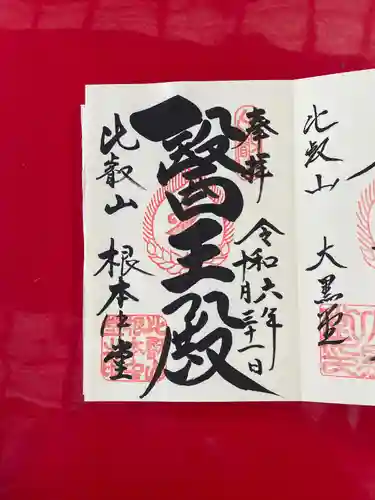 奉拝
令和六年十月三十一日
醫王殿
比叡山
根本中堂
比叡山
大黒堂